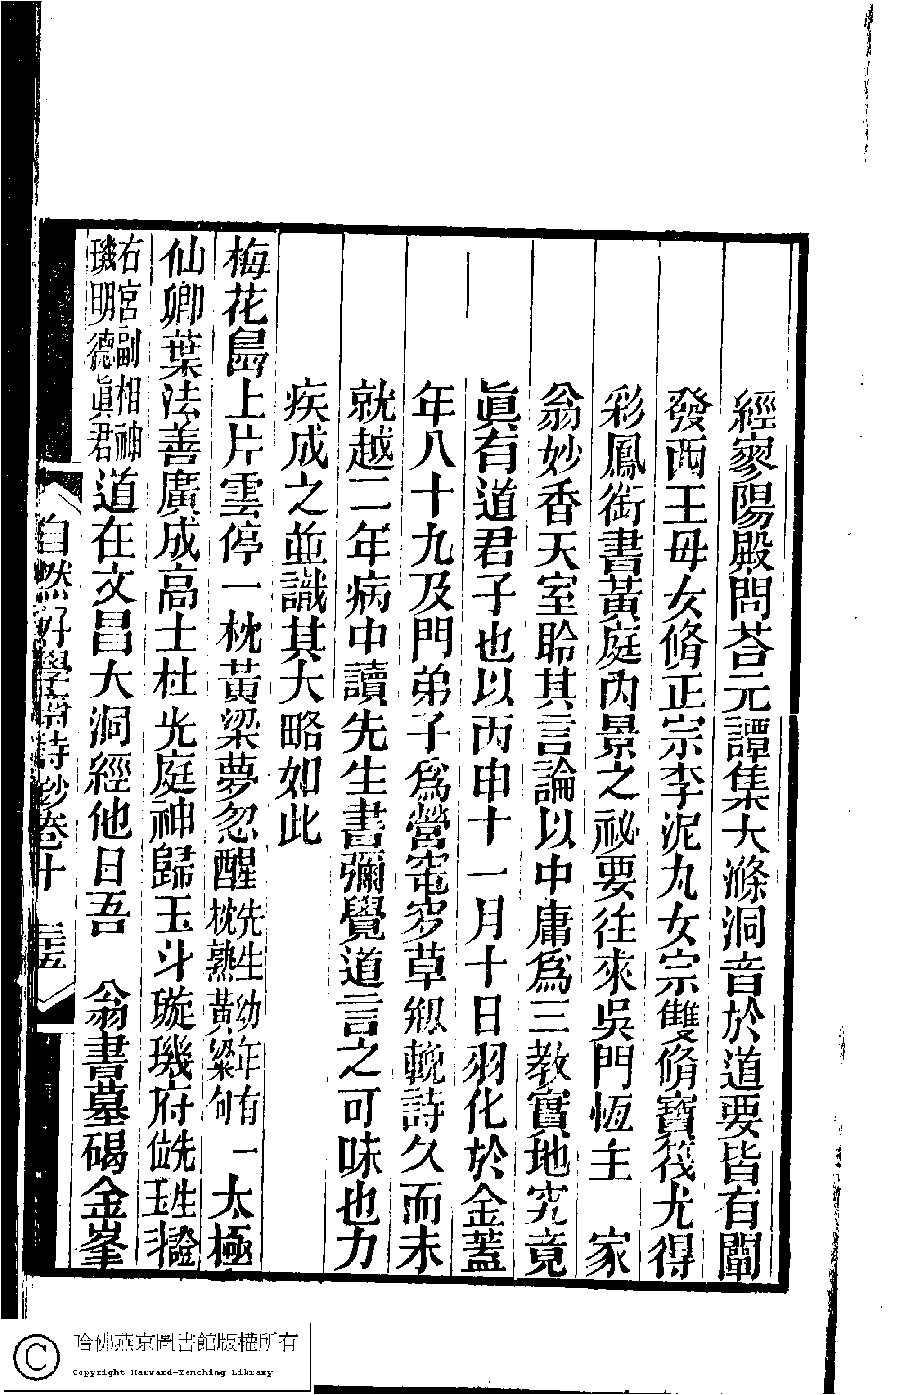 經寥陽殿問荅元譚集大滌洞音於道要皆有闡
發西王母女脩正宗李泥丸女宗雙脩寶筏尤得
彩鳳銜書黃庭內景之祕要往來吳門恆主　家
翁妙香天室聆其言論以中庸爲三教實地究竟
眞有道君子也以丙申十一月十日羽化於金蓋
年八十九及門弟子爲營窀穸草
輓詩久而未
就越二年病中讀先生書彌覺道言之可味也力
疾成之並識其大略如此
梅花島上片雲停一枕黃梁夢忽醒先生幼年有一枕熟黃粱句太極
仙卿葉法善廣成高士杜光庭神歸玉斗璇璣府先生證位玉
右宮副相神璣明德眞君道在文昌大洞經他日吾　翁書墓碣金峯
自然好學齋詩鈔卷十
三五
哈佛燕京圖書館版權所有
Copyright Harvard-Yenching Library